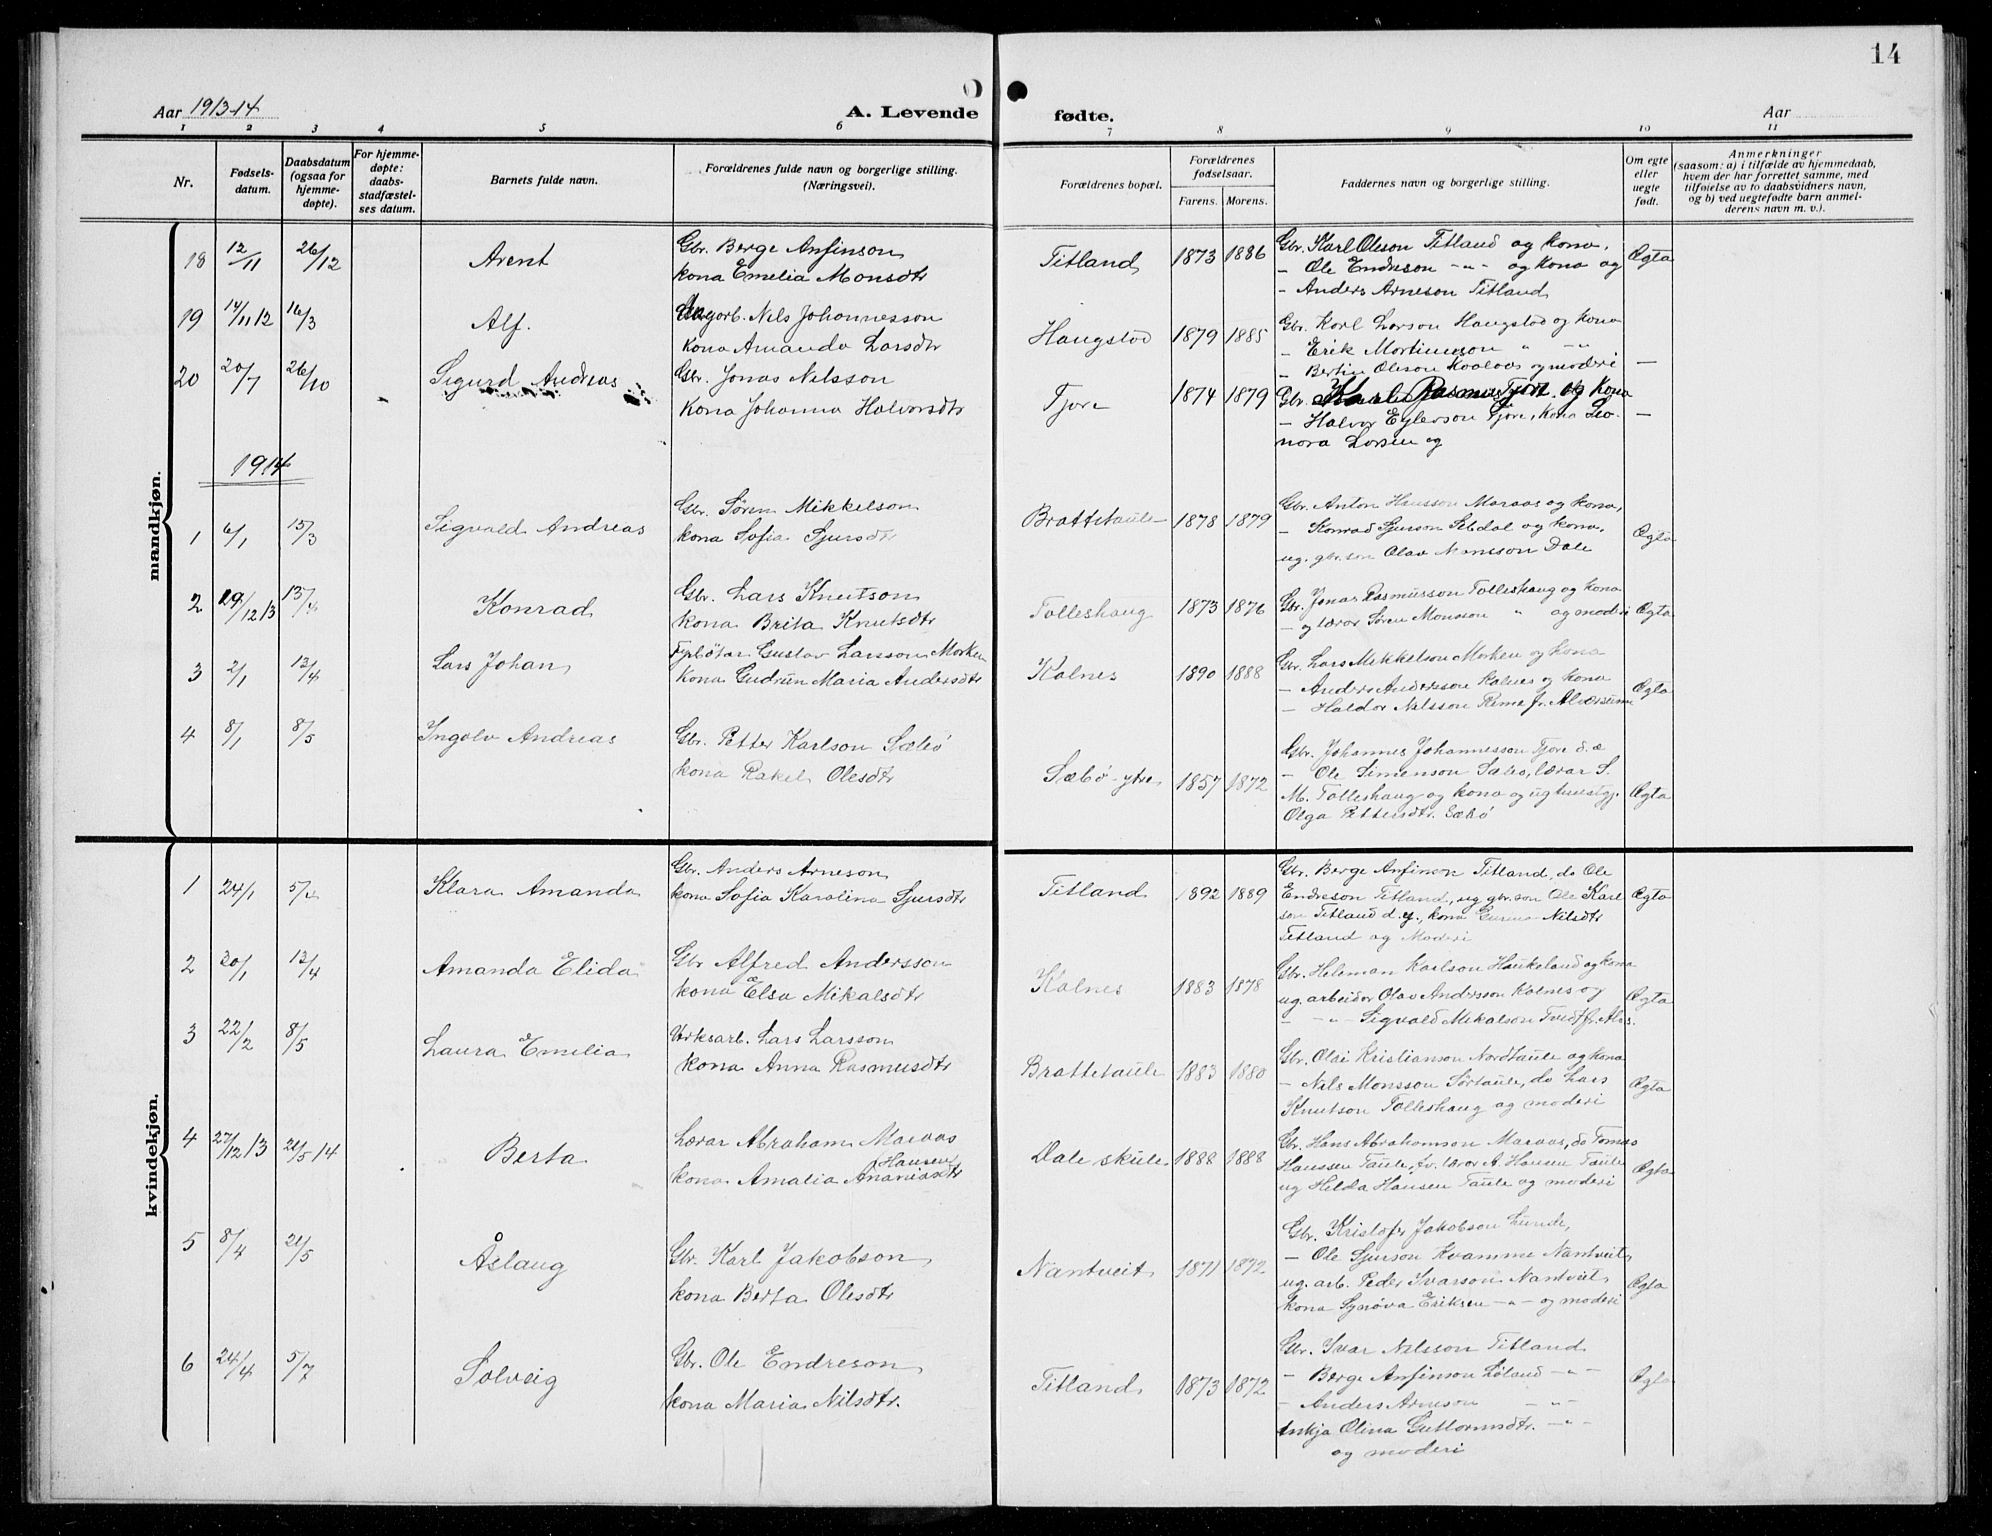 14
Aar 1913-14
A. Levende
fødte.
Aar
1 2 3 4 5 6 7 8 9 10 11
Nr.
Fødsels-
datum.
Daabsdatum
(ogsaa for
hjemme-
døpte).
For hjemme-
døpte:
daabs-
stadfæstel-
ses datum.
Barnets fulde navn.
Forældrenes fulde navn og borgerlige stilling.
(Næringsvei).
Forældrenes bopæl.
Forældrenes
fødselsaar.
Farens. Morens.
Faddernes navn og borgerlige stilling.
Om egte
eller
uegte
født.
Anmerkninger
(saasom: a) i tilfælde av hjemmedaab,
hvem der har forrettet samme, med
tilføielse av to daabsvidners navn,
og b) ved uegtefødte barn anmel-
derens navn m. v.).
mandkjøn.
18 12/11 26/12 Arent
Gbr. Berge Anfinson
kona Emelia Monsdtr
Titland 1873 1886
Gbr. Karl Oleson Titland og kona.
- Ole Endreson -"- og kona og
- Anders Arneson Titland
Ægta
19 14/11 12 16/3 Alf.
Nils Johannesson
kona Amanda Larsdtr
Haugstad 1879 1885
Gbr. Karl Larson Haugstad og kona
- Erik Mortinuson " -"-
- Bertin Oleson og moderi
—
20 20/7 26/10 Sigurd Andreas
Gbr. Jonas Nilsson
kona Johanna Halvorsdtr
Tjore 1874 1879
Gbr. Rasmus Tjore og kona
- Halvor Eylerson Tjore, kona Leo-
nora Larsen og
—
1914
1 6/1 15/3 Sigvald Andreas
Gbr. Søren Mikkelson
kona Sofia Sjursdtr
Brattetaule 1878 1879
Gbr. Anton Hansson Maraas og kona,
- Konrad Sjurson og kona,
ug. gbr.son Olav Monsson Dale
Ægta
2 29/12 13 13/4 Konrad
Gbr. Lars Knutson
kona Brita Knutsdtr
Tolleshaug 1873 1876
Gbr. Jonas Rasmusson Tolleshaug og kona
- og lærar Søren Monsson " og moderi
Ægta
3 2/1 13/4 Lars Johan
Fyrbøtar Gustav Larsson Morken
kona Gudrun Maria Andersdtr
Kalnes 1890 1888
Gbr. Lars Mikkelson Morken og kona
- Anders Anderson Kalnes og kona
- Haldor Nilsson Rema fr. Alversund
Ægta
4 8/1 8/5 Ingolv Andreas
Gbr. Petter Karlson Sæbø
kona Rakel Olesdtr
Sæbø ytre 1857 1872
Gbr. Johannes Johannesson Tjore d.æ
- Ole Simenson Sæbø, lærar S.
M. Tolleshaug og kona og ug
Olga Pettersdtr. Sæbø
Ægta
kvindekjøn.
1 24/1 5/4 Klara Amanda
Gbr. Anders Arneson
kona Sofia Karolina Sjursdtr
Titland 1892 1889
Gbr. Berge Anfinson Titland, do Ole
Endreson Titland, ug gbr.son Ole Karl
son Titland d.y., kona Nilsdtr
Titland og Moderi
Ægta
2 20/1 13/4 Amanda Elida
Gbr Alfred Andersson
kona Elsa Mikalsdtr
Kalnes 1883 1878
Gbr. Heleman Karlson Haukeland og kona
ug. arbeider Olav Andersson Kalnes og
- -"- Sigvald Mikalson Tvedt fr. Alvs.
Ægta
3 22/2 8/5 Laura Emelia
Verksarb. Lars Larsson
kona Anna Rasmusdtr
Brattetaule 1883 1880
Gbr. Olai Kristianson Nordtaule og kona
- Nils Monsson Sørtaule, do Lars
Knutson Tolleshaug og moderi
Ægta
4 27/12 13 21/5 14 Berta
Lærar Abraham Maraas
Hansen
kona Amalia Ananiasdtr
Dale skule 1888 1888
Gbr. Hans Abrahamson Maraas, do Tomas
Hanssen Taule, fv. lærar A. Hansen Taule
ug Hilda Hansen Taule og moderi
Ægta
5 8/4 21/5 Åslaug
Gbr. Karl Jakobson
kona Berta Olesdtr
Nantveit 1871 1872
Gbr. Kristofer Jakobson Lunde,
- Ole Sjurson Kvamme Nantveit
ug. arb. Peder Ivarson Nantveit
kona Synøva Eriksen -"- og moderi
Ægta
6 24/4 5/7 Solveig
Gbr. Ole Endreson
kona Maria Nilsdtr.
Titland 1873 1872
Gbr. Ivar Nilsson Titland
- Berge Anfinson -"-
- Anders Arneson -"-
Enkja Olina Guttormsdtr. -"-
og moderi
Ægta